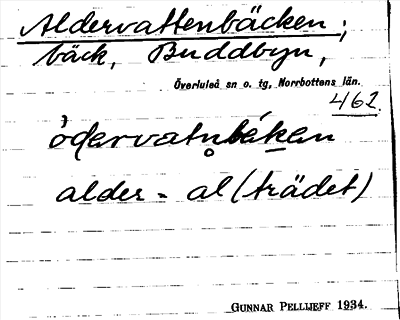 Aldervattenbäcken,
bäck, Buddbyn,
Överluleå sn o. tg, Norrbottens län.
462.
alder - al (trädet)
GUNNAR PELLIJEFF 1934.